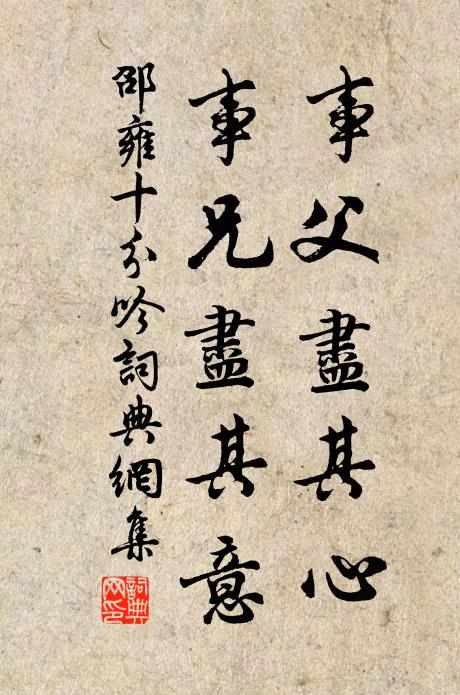 事父盡其心
事兄盡其意
邵雍十分吟詞典網集
詞典
网印